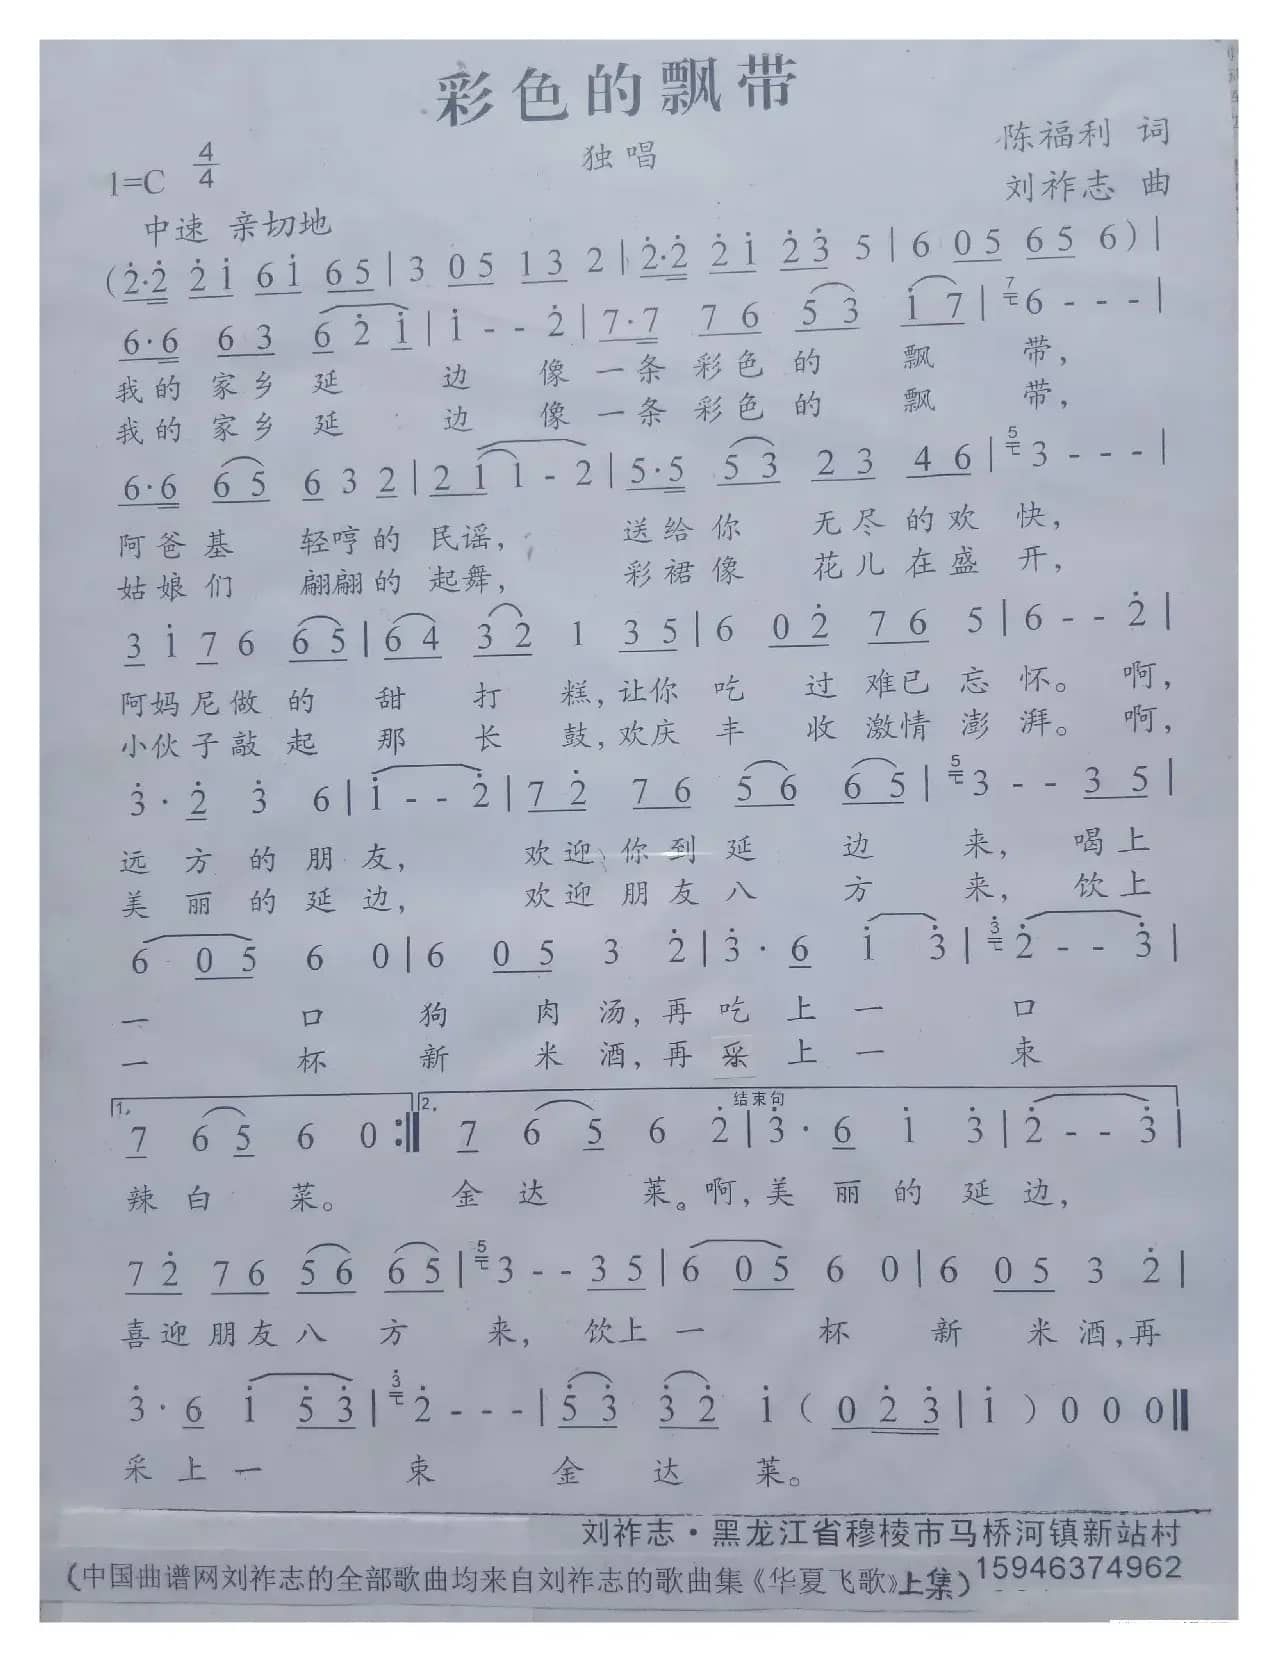 彩色的飘带
独唱
陈福利 词
1=C 4/4
刘祚志 曲
中速 亲切地
(2̇·2̇ 2̇1̇ 61̇ 65 | 3 05 13 2 | 2̇·2̇ 2̇1̇ 2̇3̇ 5 | 6 05 65 6) |
6·6 63 62̇1̇ | 1̇ - - 2̇ | 7·7 76 53 1̇7 | 7 6 - - - |
我的家乡延 边 像一条彩色的 飘 带，
我的家乡延 边 像一条彩色的 飘 带，
6·6 65 6 3 2 | 21 1 - 2 | 5·5 53 23 46 | 5 3 - - - |
阿爸基 轻哼的民谣， 送给你 无尽的欢快，
姑娘们 翩翩的起舞， 彩裙像 花儿在盛开，
3 1̇ 7 6 65 | 64 32 1 35 | 6 02̇ 76 5 | 6 - - 2̇ |
阿妈尼做的 甜 打 糕，让你吃 过难已忘怀。 啊，
小伙子敲起 那 长 鼓，欢庆丰 收激情澎湃。 啊，
3̇· 2̇ 3̇ 6 | 1̇ - - 2̇ | 72̇ 76 56 65 | 5 3 - - 35 |
远方的朋友， 欢迎你到延 边 来，喝上
美丽的延边， 欢迎朋友八 方 来，饮上
6 05 6 0 | 6 05 3 2̇ | 3̇· 6 1̇ 3̇ | 3̇ 2̇ - - 3̇ |
一 口 狗 肉汤，再吃上一 口
一 杯 新 米酒，再采上一 束
1. 2. 结束句
7 6 5 6 0 :‖ 7 6 5 6 2̇ | 3̇· 6 1̇ 3̇ | 2̇ - - 3̇ |
辣白 菜。 金达 莱。啊，美丽的延边，
72̇ 76 56 65 | 5 3 - - 35 | 6 05 6 0 | 6 05 3 2̇ |
喜迎朋友八 方 来， 饮上一 杯 新 米酒，再
3̇· 6 1̇ 5̇3̇ | 3̇ 2̇ - - - | 5̇3̇ 3̇2̇ 1̇ (02̇3̇ | 1̇) 0 0 0 ‖
采上一 束 金 达 莱。
刘祚志·黑龙江省穆棱市马桥河镇新站村
(中国曲谱网刘祚志的全部歌曲均来自刘祚志的歌曲集《华夏飞歌》上集) 15946374962